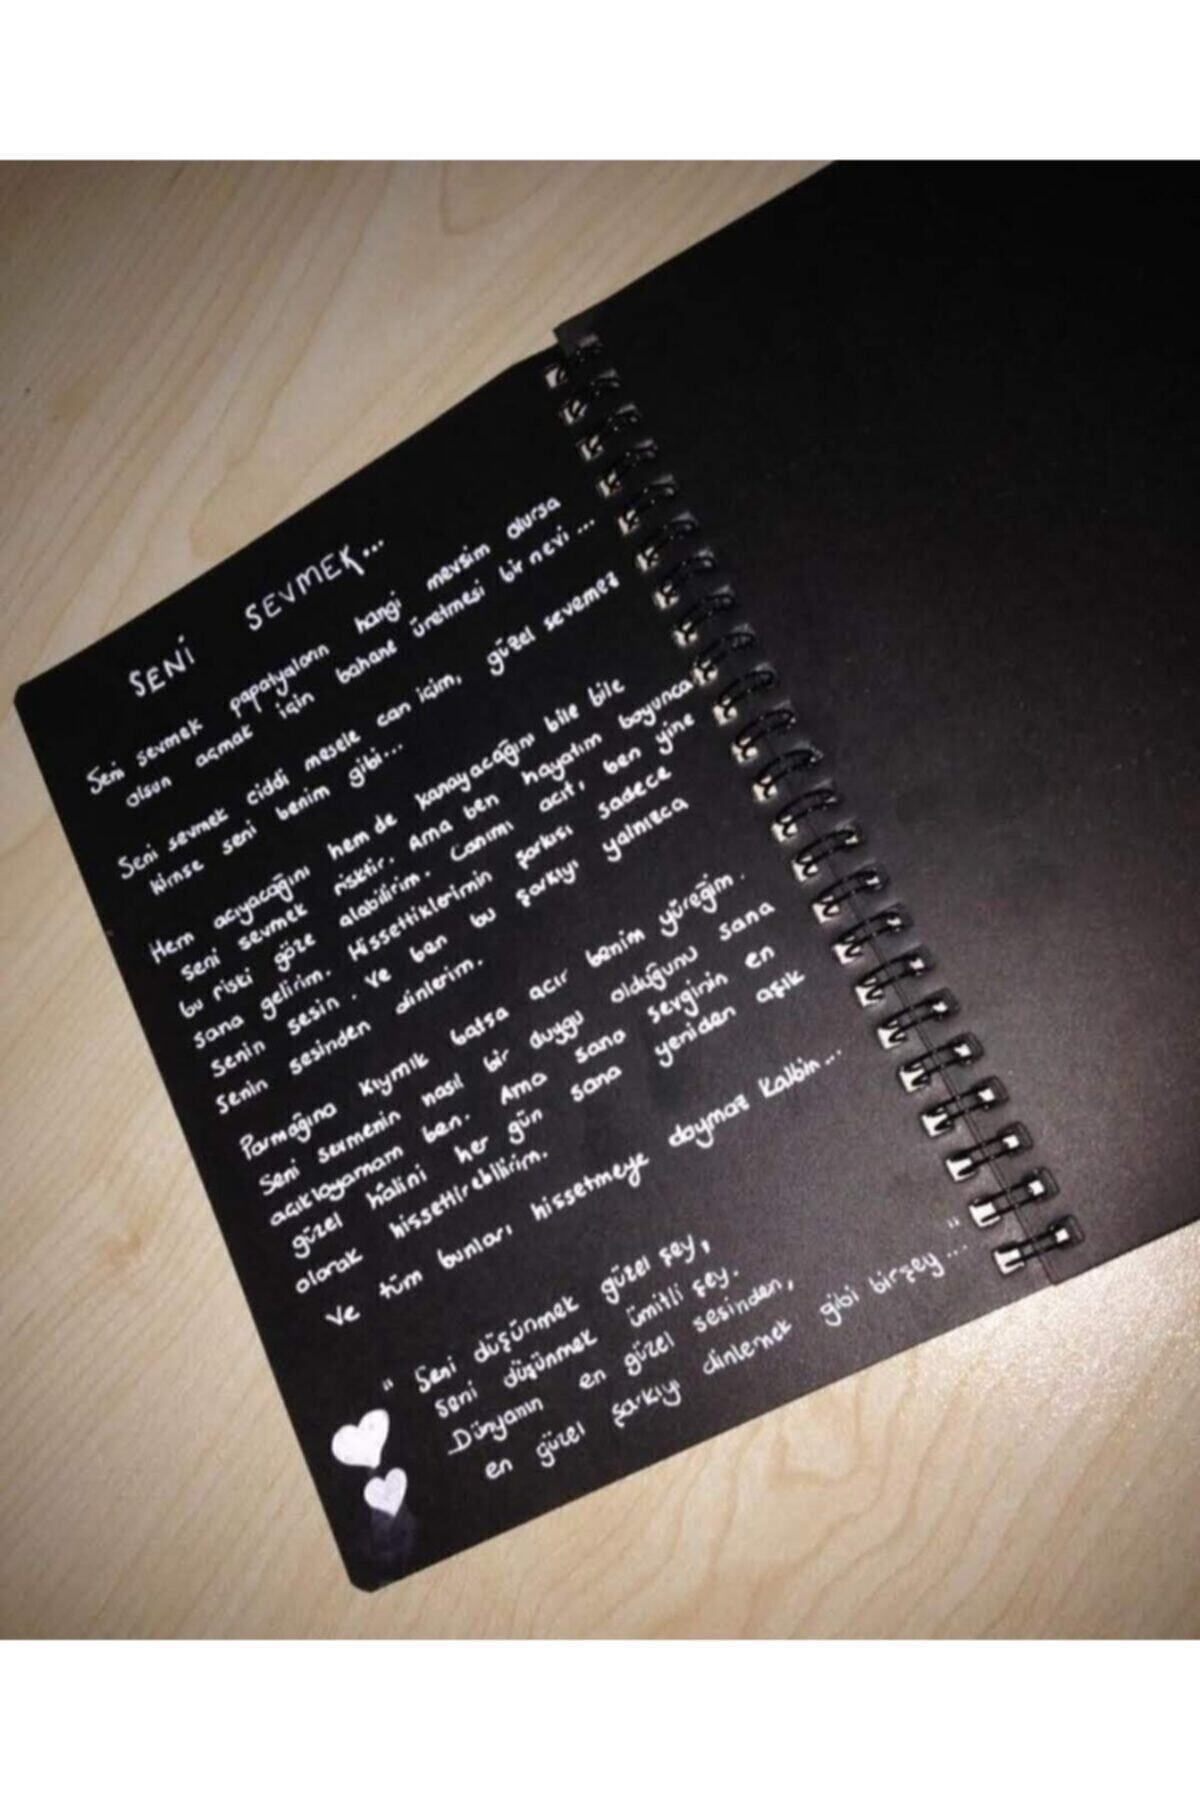 SENİ SEVMEK...
Seni sevmek papatyaların hangi mevsim olursa
olsun açmak için bahane üretmesi bir nevi...
Seni sevmek ciddi mesele can içim, güzel sevemez
kimse seni benim gibi...
Hem acıyacağını hem de kanayacağını bile bile
seni sevmek risktir. Ama ben hayatım boyunca
bu riski göze alabilirim. Canımı acıt, ben yine
sana gelirim. Hissettiklerimin şarkısı sadece
senin sesin. Ve ben bu şarkıyı yalnızca
senin sesinden dinlerim.
Parmağına kıymık batsa acır benim yüreğim.
Seni sevmenin nasıl bir duygu olduğunu sana
açıklayamam ben. Ama sana sevginin en
güzel hâlini her gün sana yeniden aşık
olarak hissettirebilirim.
Ve tüm bunları hissetmeye doymaz kalbin...
" Seni düşünmek güzel şey,
seni düşünmek ümitli şey.
Dünyanın en güzel sesinden,
en güzel şarkıyı dinlemek gibi birşey... "